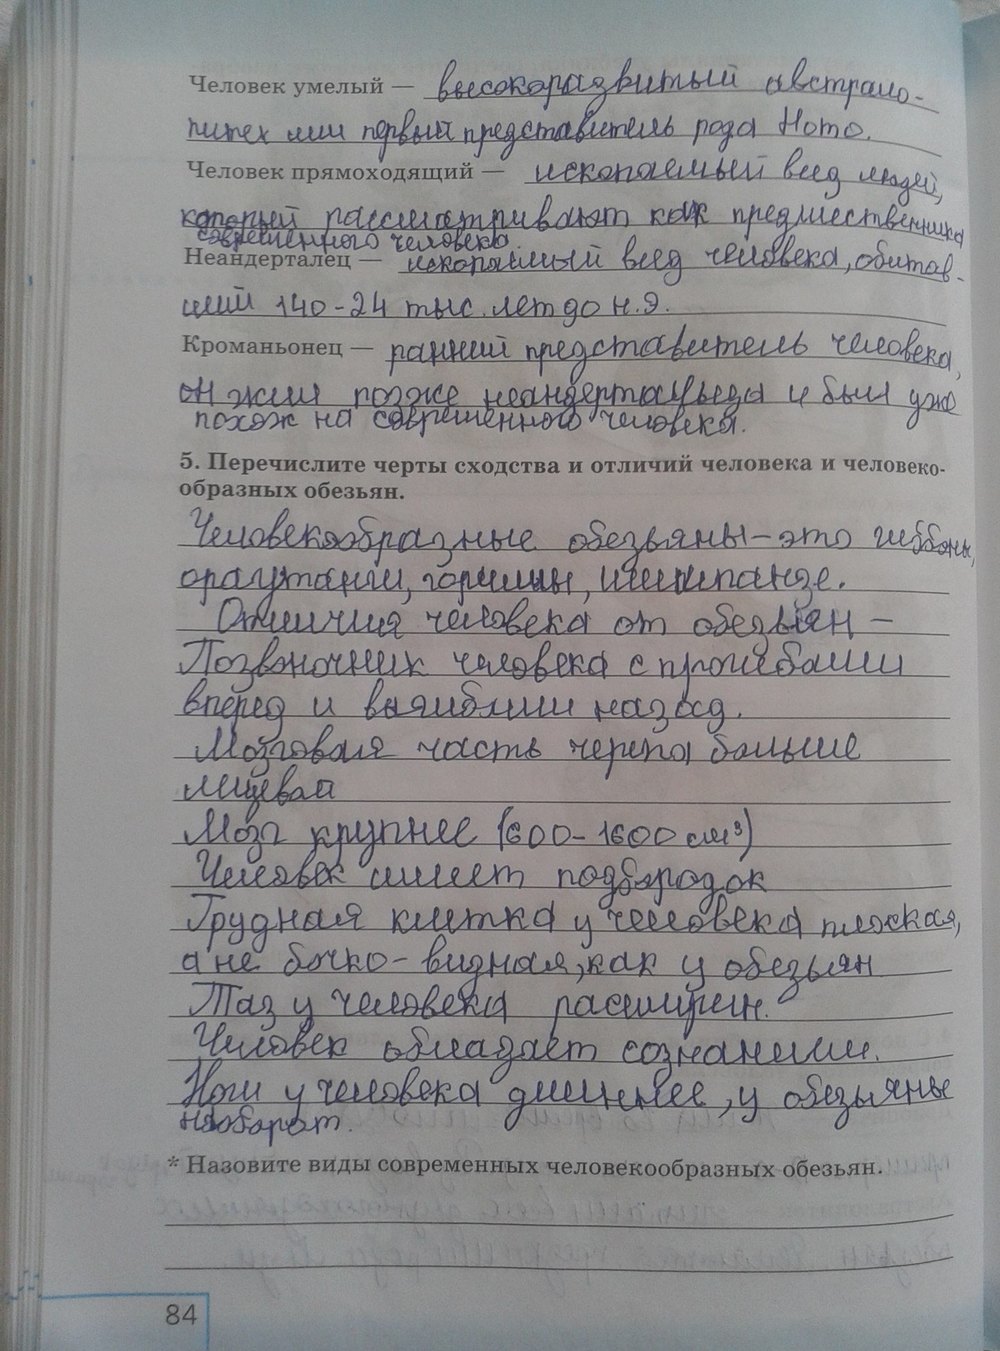 Человек умелый — высокоразвитый австрало-
питек или первый представитель рода Homo.
Человек прямоходящий — ископаемый вид людей,
который рассматривают как предшественника
современного человека.
Неандерталец — ископаемый вид человека, обитав-
ший 140-24 тыс. лет до н.э.
Кроманьонец — ранний представитель человека,
он жил позже неандертальца и был уже
похож на современного человека.
5. Перечислите черты сходства и отличий человека и человеко-
образных обезьян.
Человекообразные обезьяны – это гиббоны,
орагутанги, гориллы, шимпанзе.
Отличия человека от обезьян –
Позвоночник человека с прогибами
вперед и выгиблии назад.
Мозговая часть черепа больше
лицевой
Мозг крупнее (600-1600 см³)
Человек имеет подбородок
Грудная клетка у человека плоская,
а не бочко-видная, как у обезьян
Таз у человека расширен.
Человек обладает сознанием.
Ноги у человека длиннее, у обезьяны
наоборот.
* Назовите виды современных человекообразных обезьян.
84